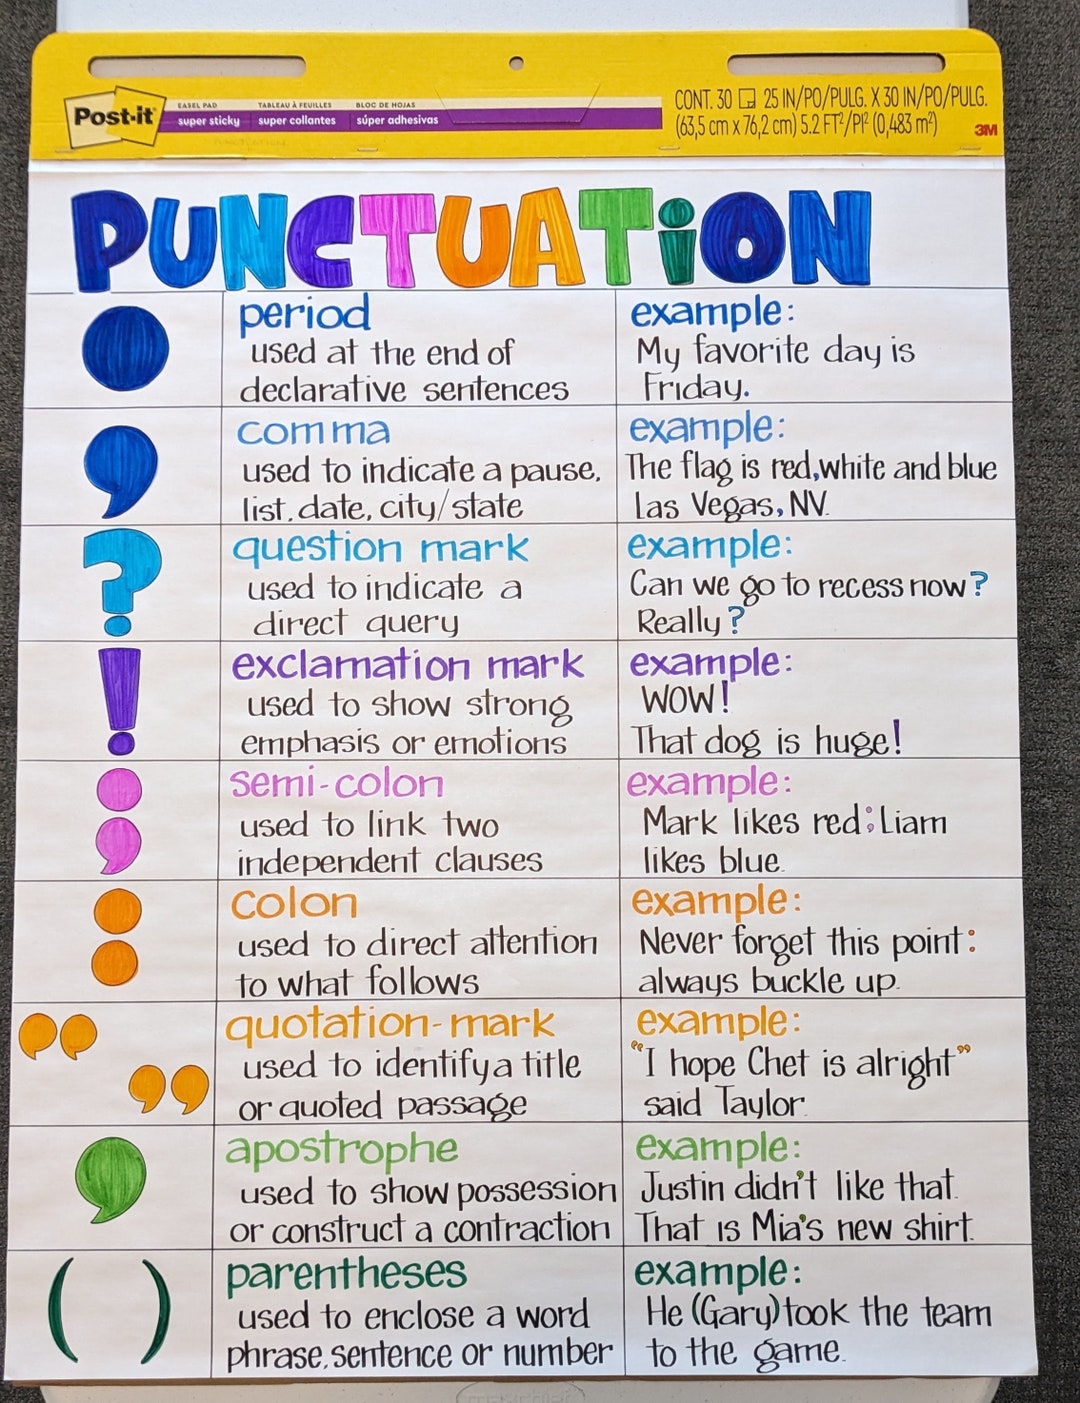 Post-it
EASEL PAD TABLEAU À FEUILLES BLOC DE HOJAS
super sticky super collantes súper adhesivas
CONT. 30 25 IN/PO/PULG. X 30 IN/PO/PULG.
(63,5 cm x 76,2 cm) 5.2 FT²/PI² (0,483 m²)
3M
PUNCTUATiON
period
used at the end of
declarative sentences
example:
My favorite day is
Friday.
comma
used to indicate a pause,
list, date, city/state
example:
The flag is red,white and blue
Las Vegas, NV.
?
question mark
used to indicate a
direct query
example:
Can we go to recess now?
Really?
!
exclamation mark
used to show strong
emphasis or emotions
example:
WOW!
That dog is huge!
;
semi-colon
used to link two
independent clauses
example:
Mark likes red; Liam
likes blue.
:
colon
used to direct attention
to what follows
example:
Never forget this point:
always buckle up.
” ”
quotation-mark
used to identify a title
or quoted passage
example:
“I hope Chet is alright”
said Taylor.
’
apostrophe
used to show possession
or construct a contraction
example:
Justin didn't like that.
That is Mia's new shirt.
( )
parentheses
used to enclose a word
phrase, sentence or number
example:
He (Gary) took the team
to the game.